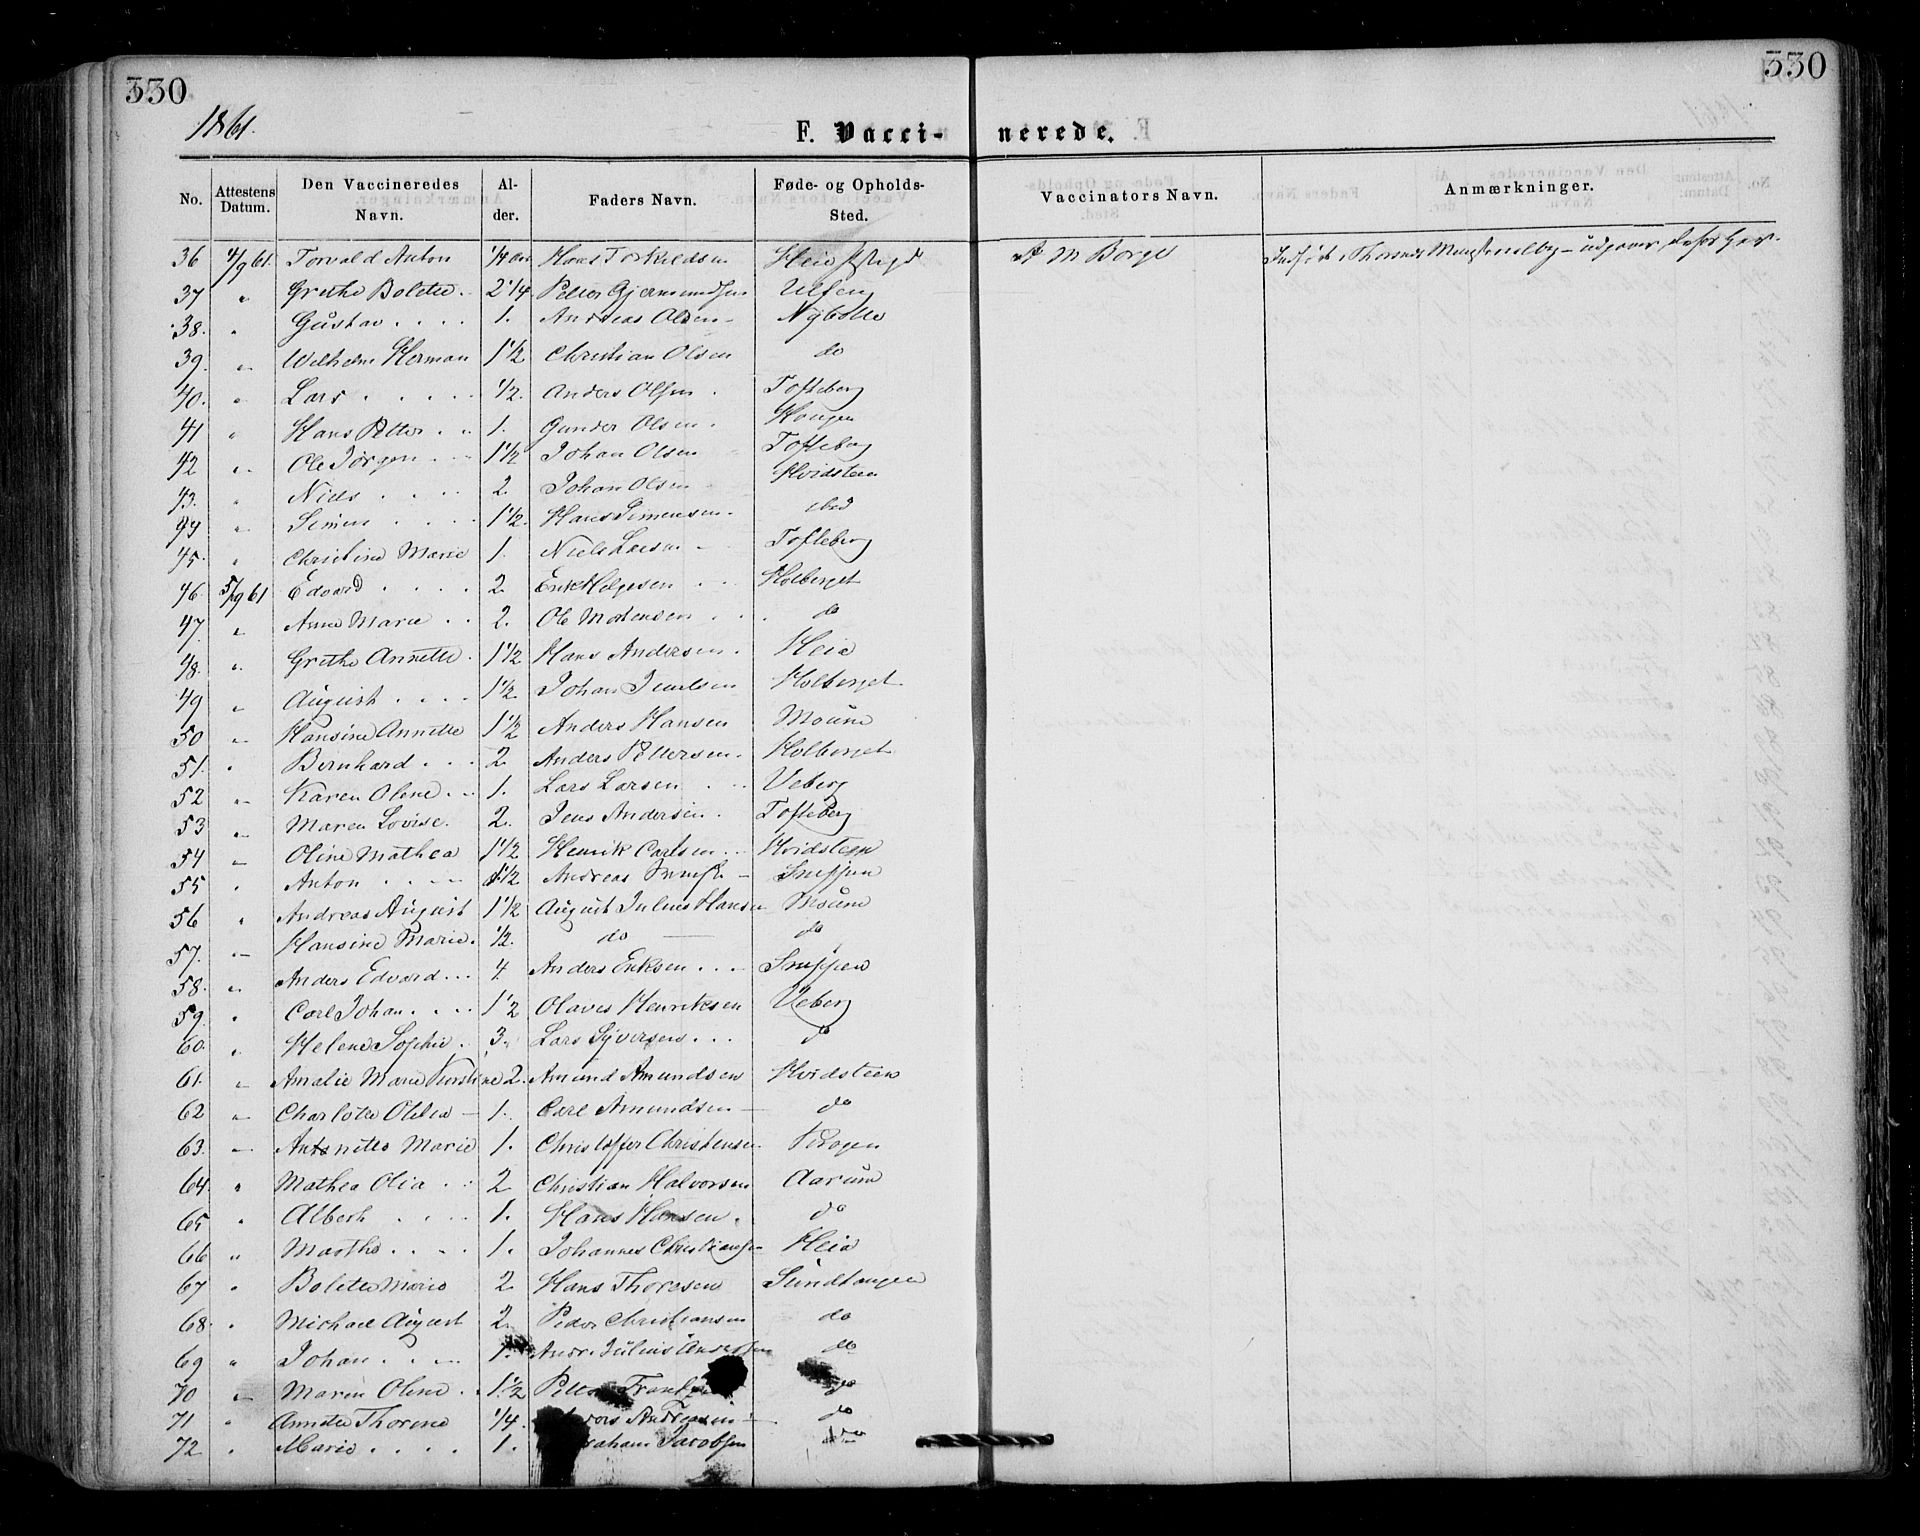 330
330
1861.
F. Vacci-nerede.
No. Attestens Datum. Den Vaccineredes Navn. Al-der. Faders Navn. Føde- og Opholds-Sted. Vaccinators Navn. Anmærkninger.
36 4/9 61. Torvald Anton 1/4 Hans Torkildsen Heie A M Borge
37 " Grethe Bolette 2 1/4 Petter Gjermundsen Ulfeng
38. " Gustav . . . . 1. Andreas Olsen Nybølle
39. " Wilhelm Herman 1 1/2 Christian Olsen do
40. " Lars . . . . 1/2. Anders Olsen . Tofteberg
41 " Hans Petter . . 1. Gunder Olsen . Hougen
42 " Ole Jørgen 1 1/2 Johan Olsen Tofteberg
43. " Niels . . . . 2. Johan Olsen Hvidsteen
44 " Simen . . . . 1 1/2. Hans Simensen. ibid
45. " Christine Marie 1. Niels Larsen - Tofteberg
46. 5/9 61 Edvard . . . . 2. Erik Helgesen . . . Holberget
47. " Anne Marie . . 2. Ole Mortensen . . . do
48. " Grethe Annette . 1 1/2 Hans Andersen . Heie
49 " August . . . . 1 1/2. Johan Holberget
50 " Hansine Annette 1 1/2 Anders Hansen Moum
51. " Bernhard . . . 2. Anders Pettersen . Holberget
52 " Karen Oline . . 1. Lars Larsen . . . Veberg
53 " Maren Lovise. 2. Jens Andersen . Tofteberg
54 " Oline Mathea 1 1/2 Henrik Carlsen . . Hvidsteen
55 " Anton . . . 1 1/2 Andreas Snippen
56 " Andreas August 1 1/2 August Julius Hansen Moum
57. " Hansine Marie. 1/2. do do
58. " Anders Edvard . . . 4 Anders Eriksen . . . Snippen
59. " Carl Johan . . . . 1 1/2 Olaves Henriksen Veberg
60. " Helene Sophie . 3. Lars Syversen . . . do
61. " Amalie Marie Kirstine 2. Amund Amundsen Hvidsteen
62 " Charlotte Olilia - 1. Carl Amundsen - do
63. " Antonitte Marie 1. Christoffer Christensen Krogen
64. " Mathea Olia . . 2 Christian Halvorsen Aarum
65 " Albert . . . . 1. Hans Hansen . do
66 " Marthe . . . . 1. Johannes Christiansen Heie
67 " Bolette Marie 2 Hans Thoresen Sundtangen
68. " Michael August 2. Peder Christiansen do
69 " Johan . . . . 1. Julius Andersen do
70 " Maren Oline . . 1 1/2 do
71 " Annette Thorine 1/4. Andreasen do
72 " Marie . . . . 1. Jacobsen do